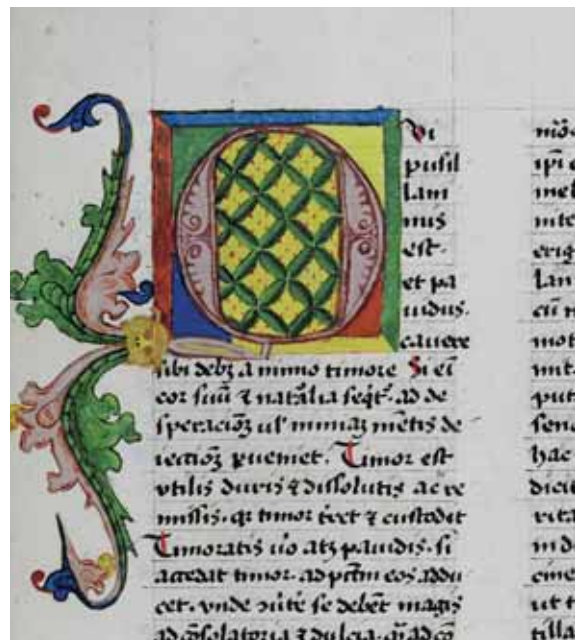 Qvi
pusil
lani
mus
est.
et pa
uidus.
cauere
sibi debꝫ a nimio timore Si eī
cor suū ⁊ natālia seqt̄. ad de
speracioꝫ ul' nimiaꝫ mētis de
iectioꝫ pueniet. Timor est
vtilis duris ⁊ dissolutis ac re
missis. qꝛ timor ⁊ custodit
Timoratis ūo atꝫ pauidis. si
accedat timor. ad pctm̄ eos addu
cet. vnde se debēt magis
ad cōsolatoria ⁊ dulcia. ad cō
mō
ipī
mel
inte
erig
lan
cū
mot
nit.
put
senc
hac
dicit
vita
in d
eme
ut t
tilla